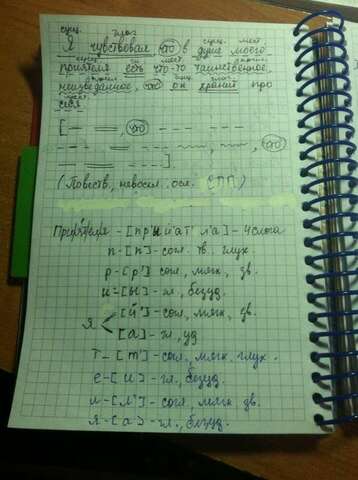 сущ. глаг. сущ. мест
Я чувствовал, что в душе моего
сущ. мест
приятеля есть что-то таинственное,
неизведанное, что он хранит про
себя
[— ═, (что) – – – – – –
(Повеств, невоскл. осл. СПП)
Приятеля – [пр'ий'ат'л'а] – 4 слога
п – [п] – согл. тв. глух
р – [р'] согл, мягк, зв.
и – [ы] – гл., безуд.
я < [й'] – согл, мягк, зв.
[а] – гл, уд
т – [т'] – согл, мягк, глух.
е – [и] – гл., безуд.
л – [л'] – согл, мягк. зв.
я – [а] – гл., безуд.